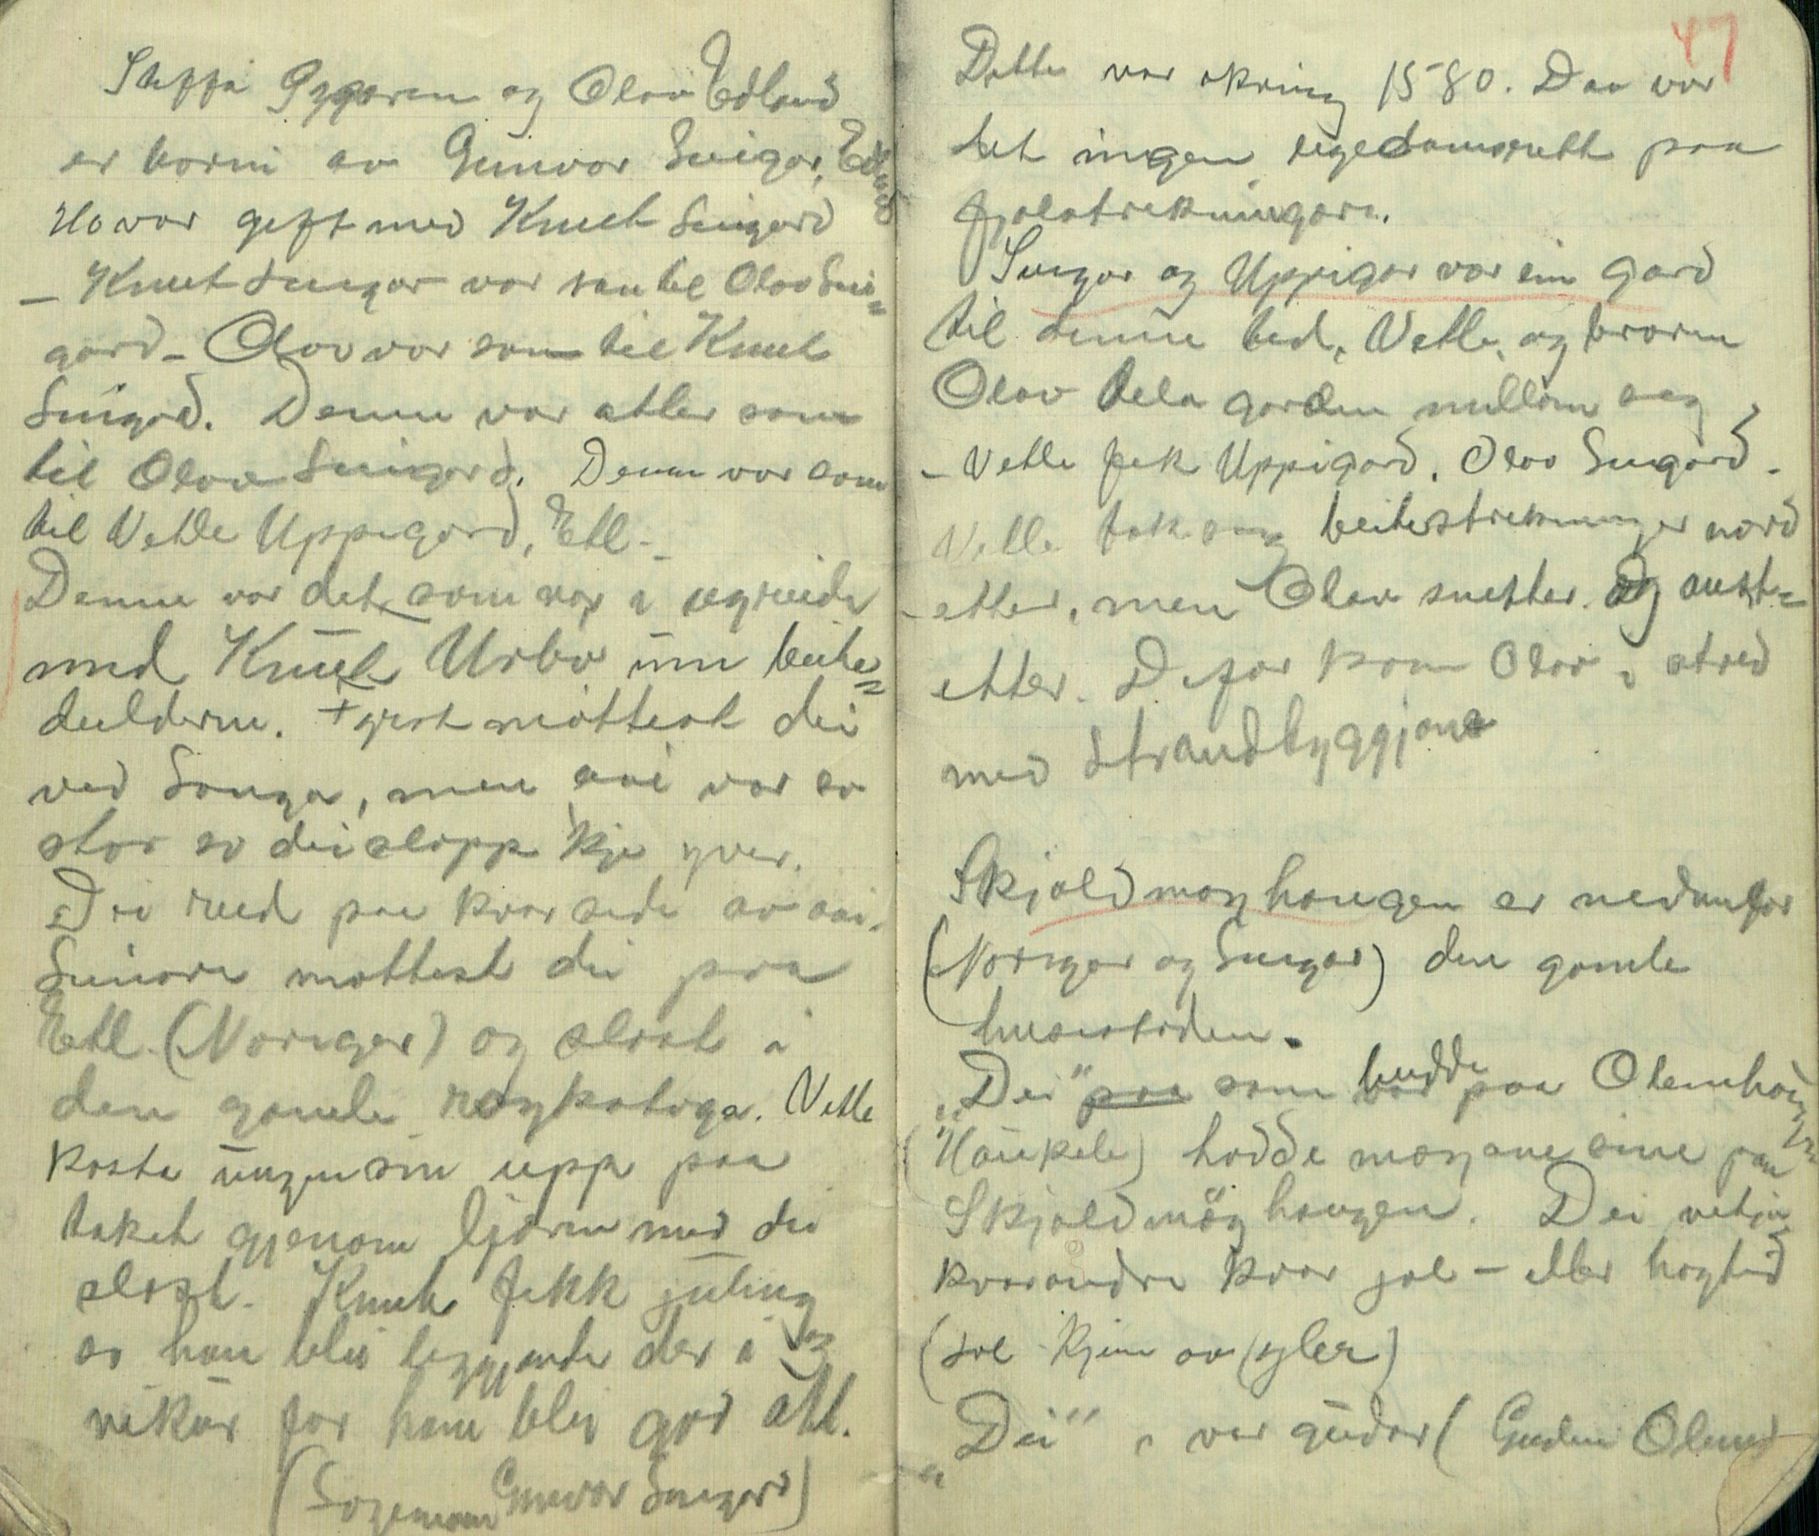 Steffå Gygaren og Olav Edland
er borni av Gunvor Suigar, Edland
Ho var gift med Knut Suigard
– Knut Suigar var son til Olav Sui=
gard – Olav var son til Knut
Suigard. Denne var atter son
til Olav Suigard. Denne var son
til Vetle Uppigard, Etl. –
Denne var det som var i ugreide
med Knut Urbø um beite=
deilderne. + gest møttest dei
ved Songa, men aai var so
stor so dei slapp kje yver.
Dei reid paa kvar side av aai.
Seinare møttest dei paa
Etl. (Norigar) og slost i
den gamle røykstoga. Vetle
kasta ungen sin upp paa
taket gjenom ljoren med dei
slost. Knut fekk juling
so han blei leggjande der i 23
vikur for han blei god att.
(Sogemann Gunvor Suigard)
47
Dette var okring 1580. Daa var
det ingen eigedomsrett paa
fjølstrekningare.
Suigar og Uppigar var ein gard
til denne tid. Vetle og broren
Olav dela garden millom seg
– Vetle fek Uppigard. Olav Suigard.
Vetle tok seg beitestrekninger nord
etter, men Olav suetter og aust=
etter. Difor kom Olav i strid
med Strandbyggjane
Skjoldmøyhaugen er nedanfor
(Norigar og Suigar) den gamle
husestoden.
"Dei" paa som budde paa Olemhaug
(Haukeli) hadde møyane sine paa
Skjoldmøyhaugen. Dei
kvarandre kvar jol – eller høgtid
(Jol kjem av (yler)
"Dei" var gudar (Guden